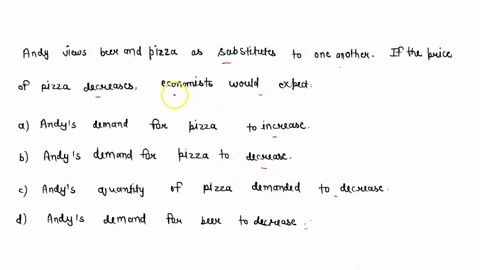 Andy views beer and pizza as substitutes to one another. If the price
of pizza decreases, economists would expect:
a) Andy's demand for pizza to increase.
b) Andy's demand for pizza to decrease.
c) Andy's quantity of pizza demanded to decrease.
d) Andy's demand for beer to decrease.